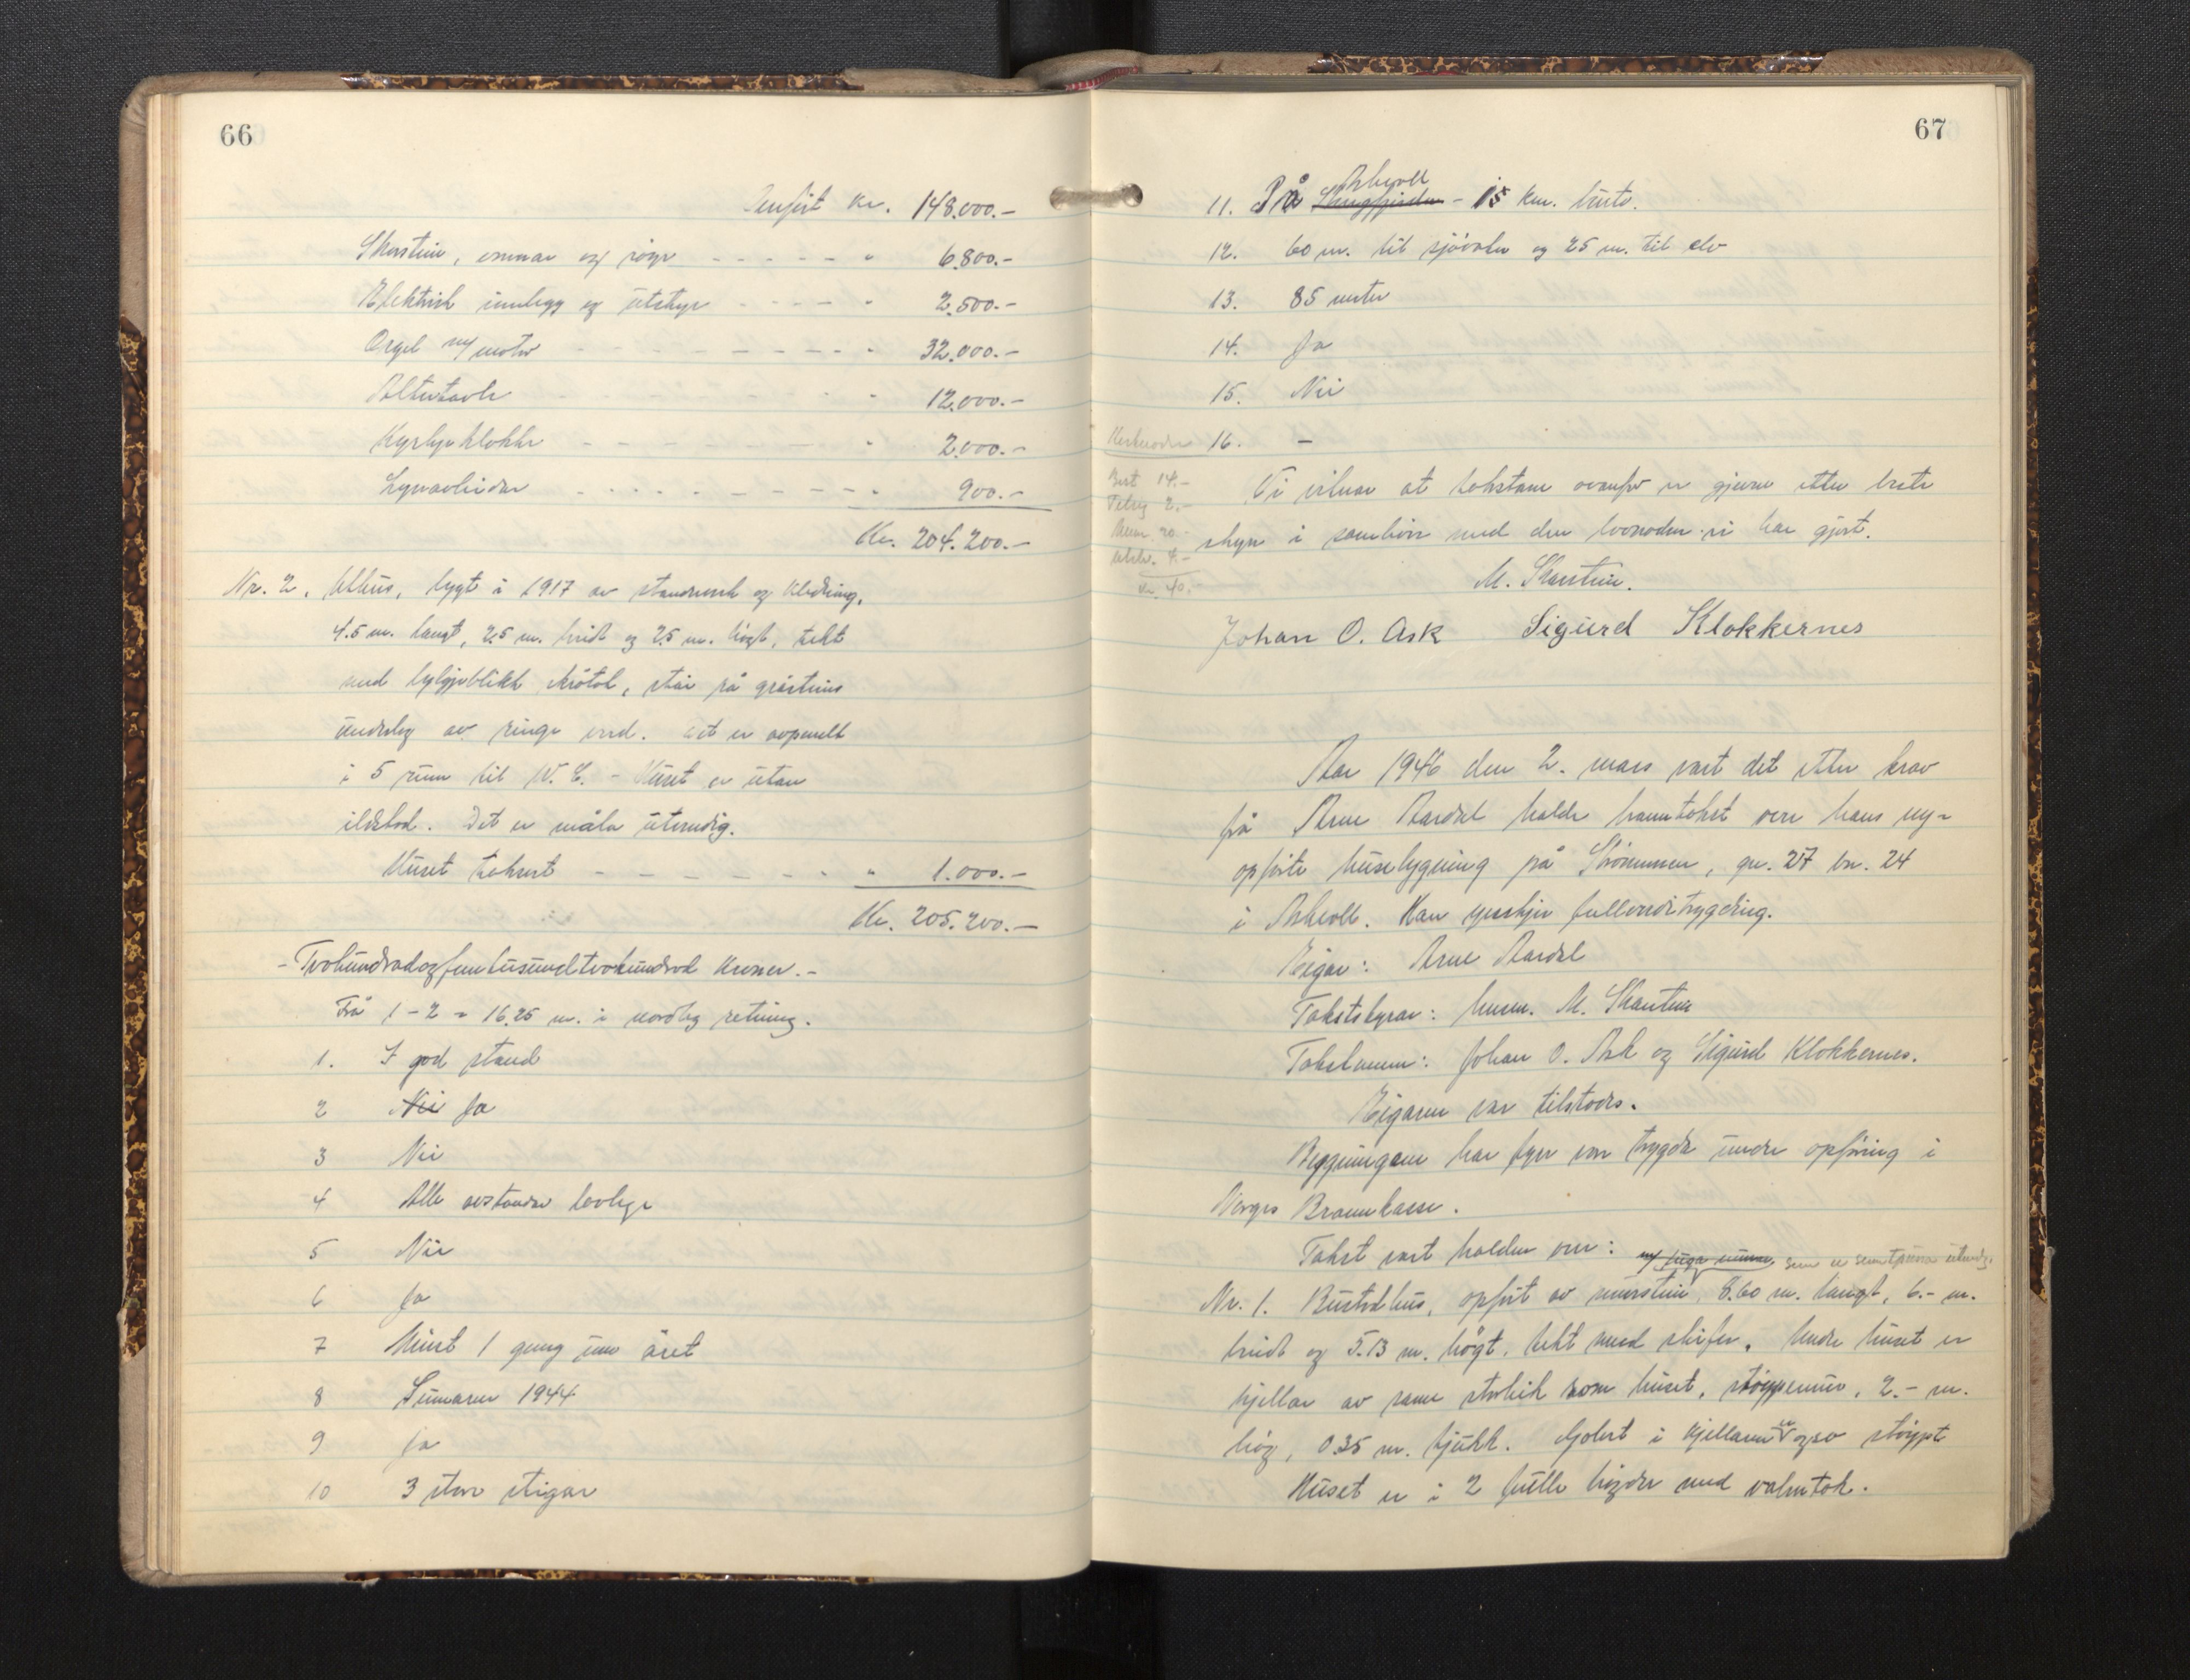 66
Innført kr. 148.000.-
Skorstein, omnar og røyr - - - - - " 6.800.-
Elektrisk innlegg og utstyr - - - - " 2.500.-
Orgel m/ motor - - - - - - - - - " 32.000.-
Altertavle - - - - - " 12.000.-
Kyrkjeklokke - - - - - - - - " 2.000.-
Lynavleidar - - - - - - - - - " 900.-
Kr. 204.200.-
Nr. 2. Uthus, bygt i 1917 av standverk og kledning,
4.5 m. langt, 2.5 m. breidt og 2.5 m. høgt, tekt
med bylgjeblikk skråtak, står på gråsteins
underlag av ringe verd. Det er avpanelt
i 5 rum til W.C. - Huset er utan
ildstad. Det er måla utvendig.
Huset taksert - - - - - - - " 1.000.-
Kr. 205.200.-
- Tvohundradogfemtusundtvohundrad kroner. -
Frå 1 - 2 = 16.25 m. i nordleg retning.
1. I god stand
2 Nei Ja
3 Nei
4 Alle avstandar lovlege
5 Nei
6 Ja
7 Minst 1 gong um året
8 Sumaren 1944
9 Ja
10 3 store stigar
67
Askvoll
11. På - 15 km. burte.
12. 60 m. til sjövatn og 25 m. til elv
13. 85 meter
14. Ja
15. Nei
16. -
14.-
2.-
20.-
4.-
kr. 40.-
Vi vitnar at takstane ovanfor er gjevne etter beste
skyn i samhøve med den lovnaden vi har gjort.
M. Skarstein.
Johan O. Ask Sigurd Klokkernes
Aar 1946 den 2. mars vart det etter krav
frå Arne Aardal halde branntakst over hans ny-
opførte husebygning på Strömmen, gn. 27 bn. 24
i Askvoll. Han ynskjer fullverditrygding.
Eigar: Arne Aardal
Takststyrar: lensm. M. Skarstein
Takstmenn: Johan O. Ask og Sigurd Klokkernes.
Eigaren var tilstades.
Bygningane har fyrr vore trygda under opføring i
Norges Brannkasse.
Takst vart halden over: som er sementpussa utvendig.
Nr. 1. Bustadhus, opført av murstein, 8.60 m. langt, 6.- m.
breidt og 5.13 m. høgt, tekt med skifer. Under huset er
kjellar av same storleik som huset, støypemur, 2.- m.
høg, 0.35 m. tjukk. Golvet i kjellaren er ogso støypt
Huset er i 2 fulle høgder med valmtak.